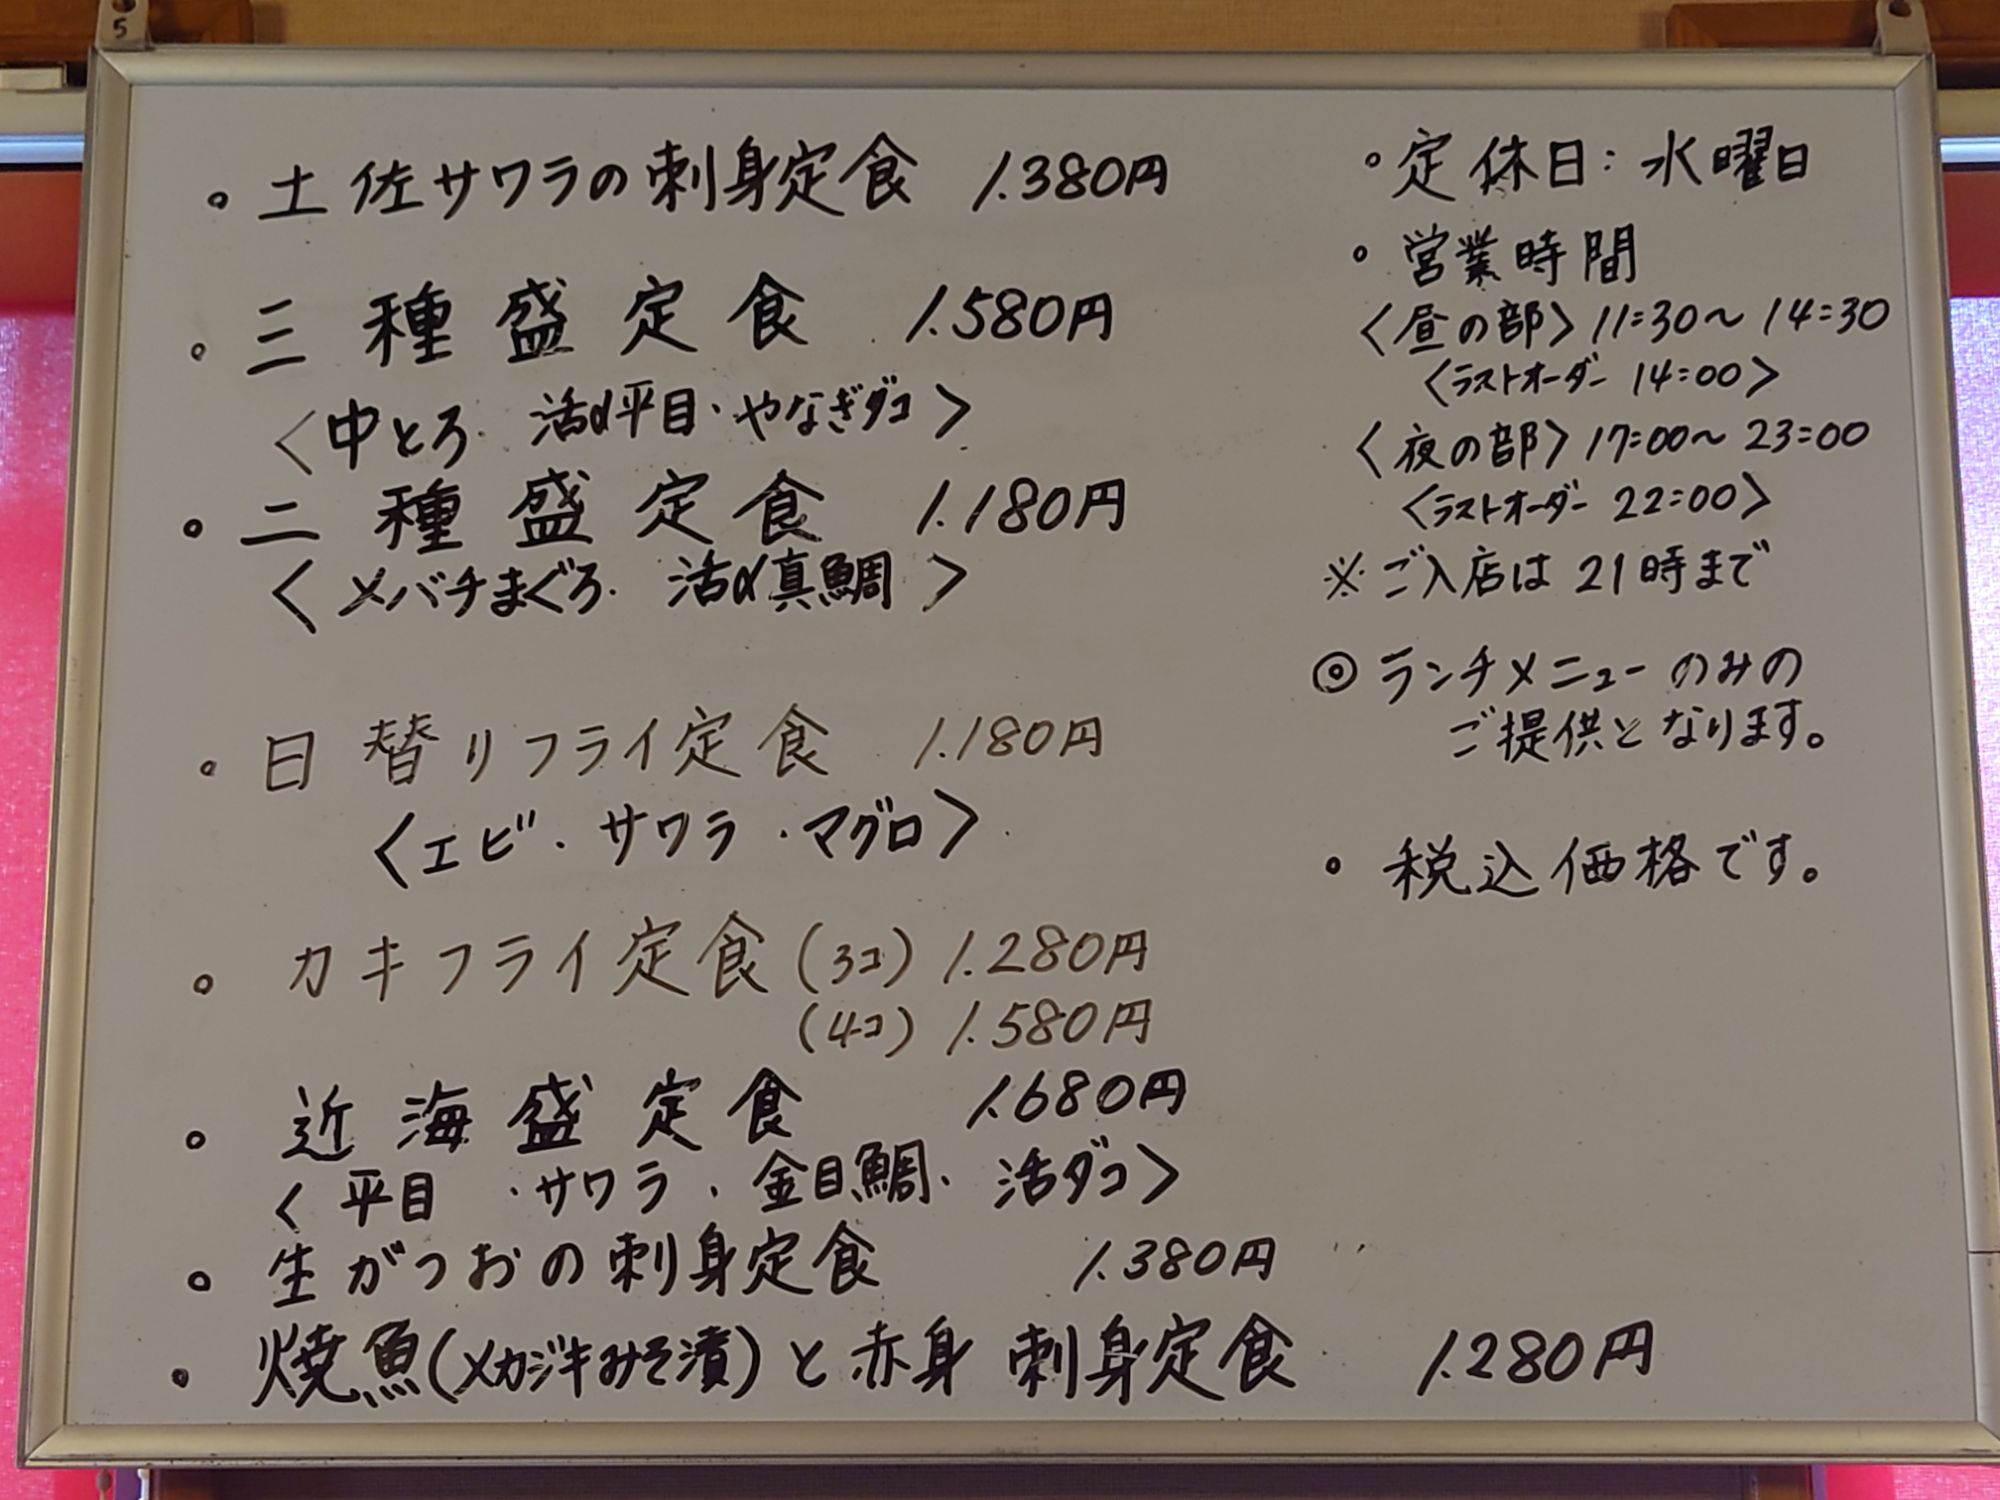 5
。土佐サワラの刺身定食 1.380円
。三種盛定食 1.580円
〈中とろ. 活〆平目・やなぎダコ〉
。二種盛定食 1.180円
〈メバチまぐろ. 活〆真鯛〉
。日替りフライ定食 1.180円
〈エビ・サワラ・マグロ〉
。カキフライ定食(3コ) 1.280円
(4コ) 1.580円
。近海盛定食 1.680円
〈平目・サワラ・金目鯛・活ダコ〉
。生がつおの刺身定食 1.380円
。焼魚(メカジキみそ漬)と赤身刺身定食 1.280円
。定休日:水曜日
。営業時間
〈昼の部〉11:30～14:30
〈ラストオーダー 14:00〉
〈夜の部〉17:00～23:00
〈ラストオーダー 22:00〉
※ご入店は21時まで
◎ランチメニューのみの
ご提供となります。
。税込価格です。